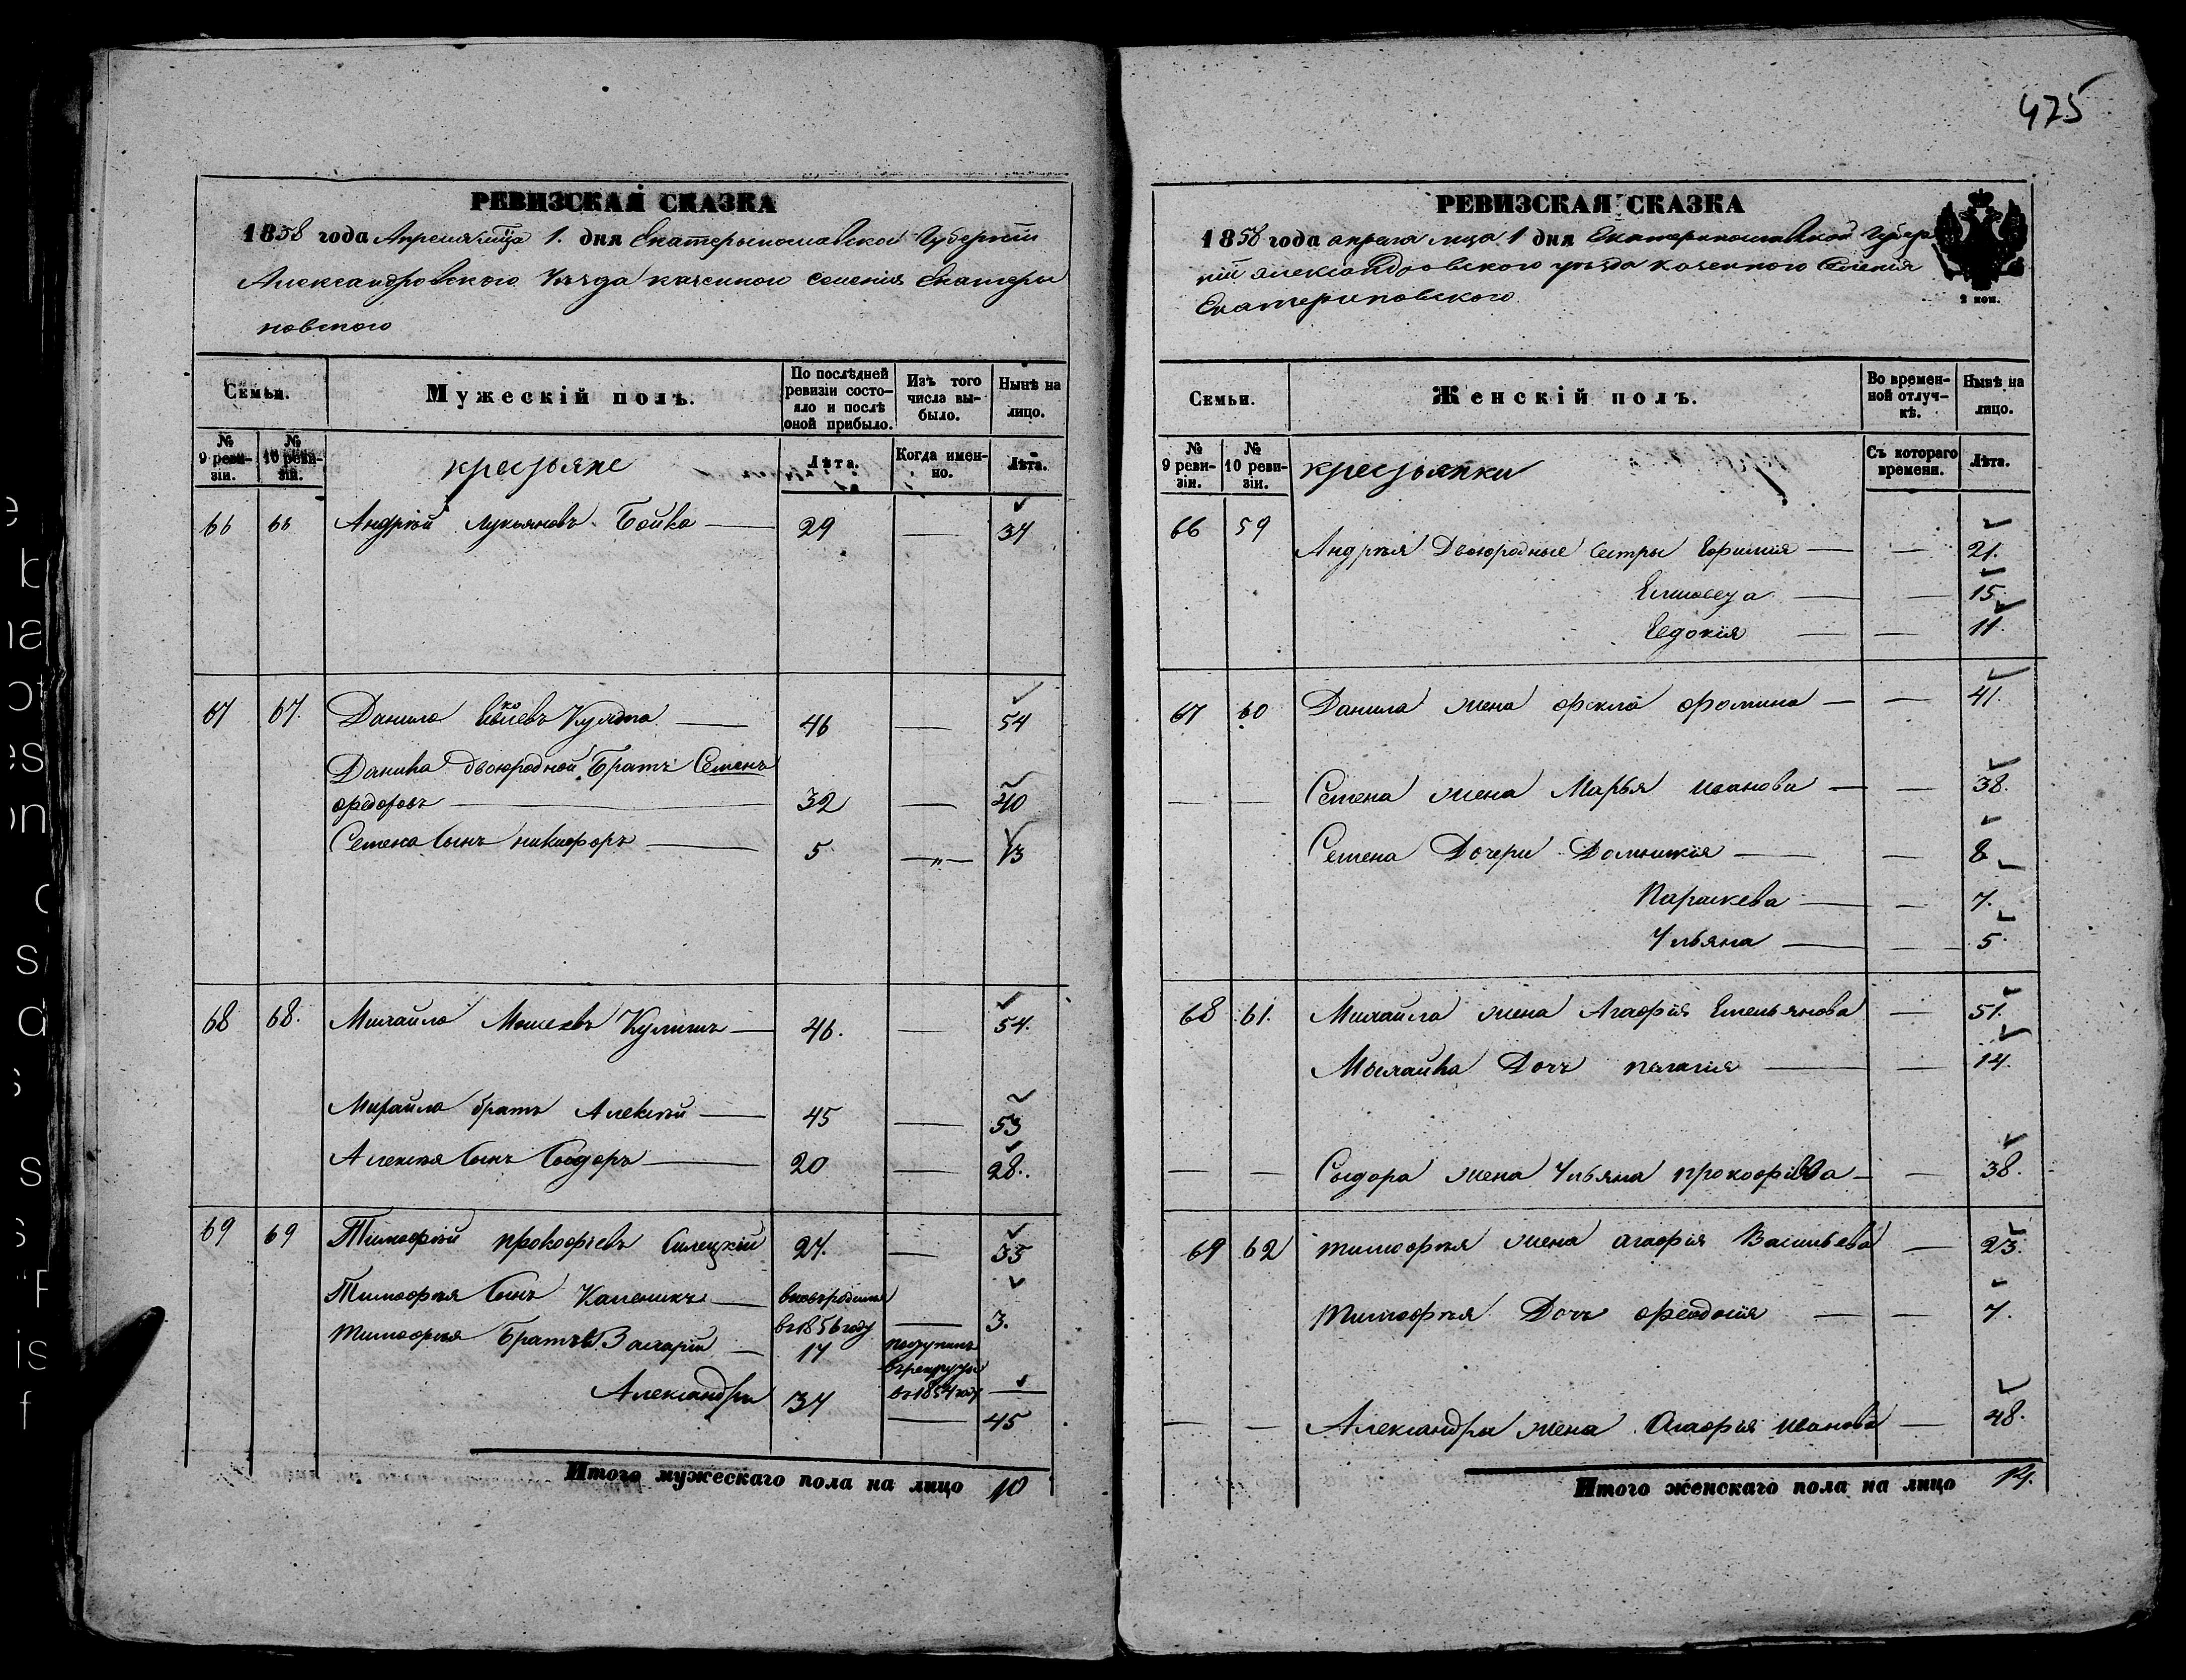 475
РЕВИЗСКАЯ СКАЗКА
1858 года Апреля мца 1. дня Екатерынославской Губернїи
Александровского Уезда казенного селенїя Екатери
новского
Семьи.
Мужескій полъ.
По послѣдней ревизіи состояло и послѣ оной прибыло.
Изъ того числа выбыло.
Нынѣ на лицо.
№ 9 ревизіи.
№ 10 ревизіи.
крестьяне
Лѣта.
Когда именно.
Лѣта.
66 66 Андрѣй Лукьяновъ Бойко — 29 — 37
67 67. Данило Кулята — 46 — 54
Данила двоюродной Братъ Семенъ
Федоровъ — 32 — 40
Семена Сынъ никифоръ — 5 —„— 13
68 68. Михайло Моисеевъ Кулишъ — 46. — 54.
Михайло братъ Алексѣй — 45 — 53
Алексѣя Сынъ Сыдоръ — 20 — 28.
69 69 Тимофѣй прокофьевъ Силецкїй 27. — 35
Тимофѣя Сынъ Каленикъ — вновьрожденъ
в 1856 году — 3.
тимофѣя Братья Захарїй — 17 поступилъ
в рекруты
Александръ 37 в 1854 году —
— 45
Итого мужескаго пола на лицо 10
РЕВИЗСКАЯ СКАЗКА
1858 года апреля мца 1 дня Екатеринославской Губер
нїй Александровского уезда казенного Селенїя
Екатериновского
2 коп.
Семьи.
Женскій полъ.
Во временной отлучкѣ.
Нынѣ на лицо.
№ 9 ревизіи.
№ 10 ревизіи.
крестьянки
Съ котораго времени.
Лѣта.
66 59
Андрѣя Двоюродные Сестры Ефимия — — 21.
Елисавета — — 15.
Евдокїя — — 11.
67 60 Данила жена фекла фомина — — 41.
— — Семена жена Марья иванова — — 38.
Семена Дочери Домникїя — — 8
Параскева — — 7.
Ульяна — — 5.
68 61. Михайла жена Агафїя Емельянова — 51.
Михайла Дочь пелагия — — 14.
— — Сыдора жена Ульяна прокофїева — — 38.
69 62 тимофѣя жена агафїя Васильева — 23.
тимофѣя Дочь феодосїя — — 7.
— — Александра жена Агафья иванова — 48.
Итого женскаго пола на лицо 14.